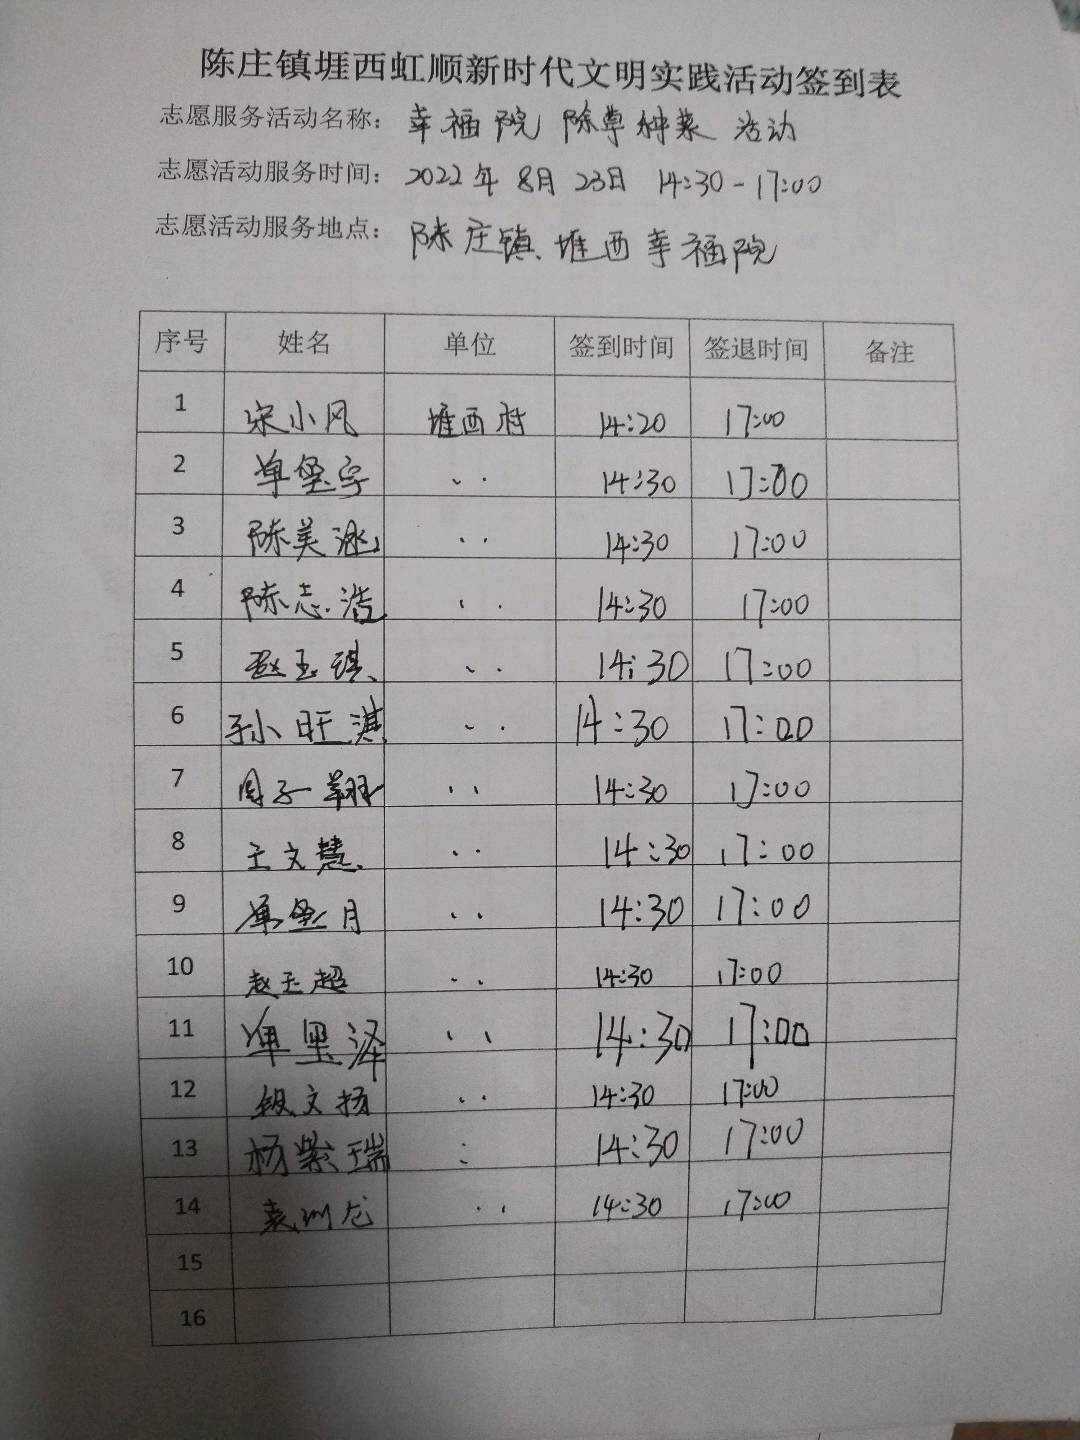 陈庄镇堐西虹顺新时代文明实践活动签到表
志愿服务活动名称：幸福院除草种菜活动
志愿活动服务时间：2022年8月23日 14:30-17:00
志愿活动服务地点：陈庄镇堐西幸福院
序号 姓名 单位 签到时间 签退时间 备注
1 宋小风 堐西村 14:20 17:00
2 14:30 17:00
3 陈美 14:30 17:00
4 陈志浩 14:30 17:00
5 赵玉琪 14:30 17:00
6 孙旺淇 14:30 17:00
7 周子翔 14:30 17:00
8 王文慧 14:30 17:00
9 14:30 17:00
10 赵玉超 14:30 17:00
11 14:30 17:00
12 文扬 14:30 17:00
13 杨紫瑞 14:30 17:00
14 袁训龙 14:30 17:00
15
16